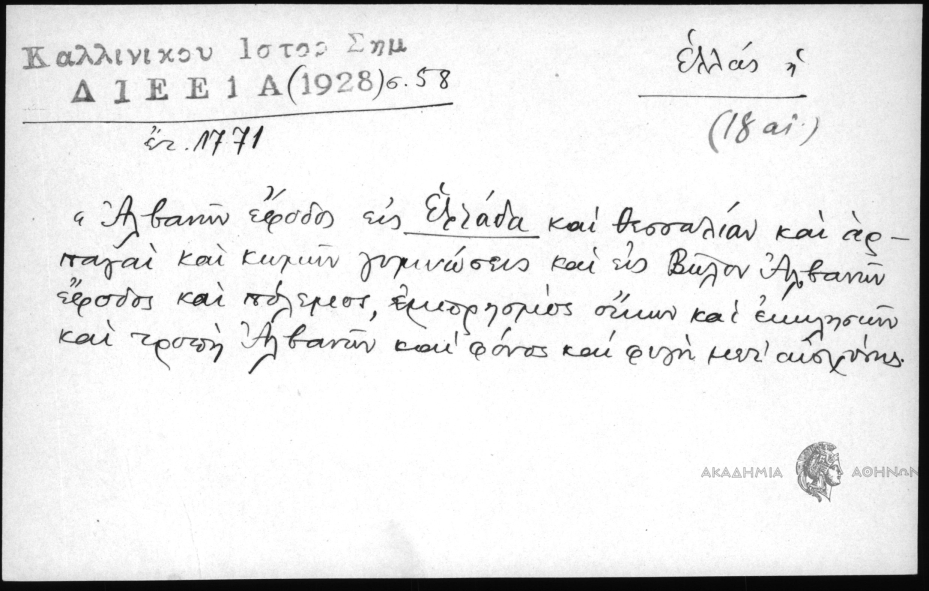 Καλλινικου Ιστορ Σημ
ΔΙΕΕ ΙΑ (1928) σ. 58
ἔτ. 1771
Ἑλλάς ἡ
(18 αἰ.)
« Ἀλβανῶν ἔφοδος εἰς Ἑλλάδα καὶ Θεσσαλίαν καὶ ἁρ-
παγαὶ καὶ κωμῶν γυμνώσεις καὶ εἰς Βῶλον Ἀλβανῶν
ἔφοδος καὶ πόλεμος, ἐμπρησμὸς οἴκων καὶ ἐκκλησιῶν
καὶ τροπὴ Ἀλβανῶν καὶ φόνος καὶ φυγὴ μετ' αἰσχύνης.
ΑΚΑΔΗΜΙΑ ΑΘΗΝΩΝ